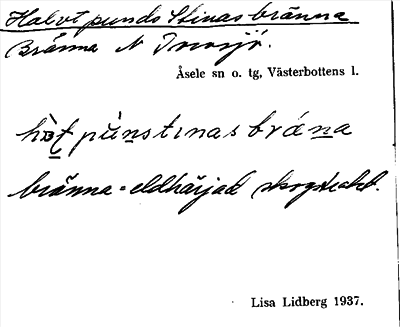 Halvt punds Stinas bränna
Bränna N
Åsele sn o. tg, Västerbottens l.
pùnstınasbrána
bränna = eldhärjad
Lisa Lidberg 1937.